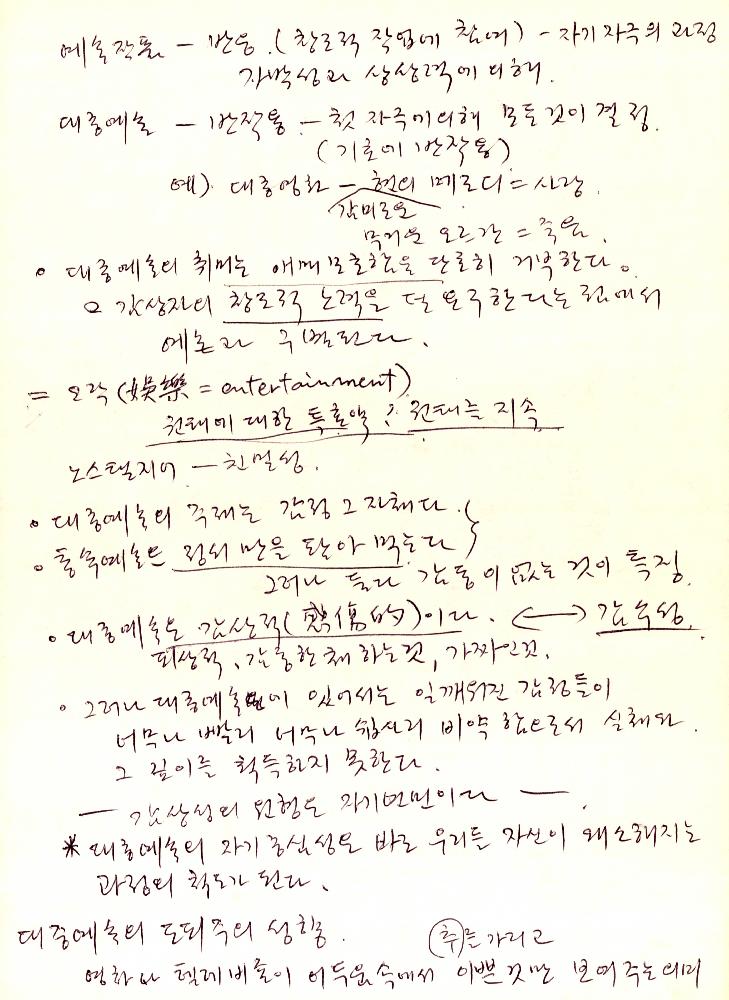 예술작품 — 반응.(창조적 작업에 참여) - 자기자극의 과정
자발성과 상상력에 의해.
대중예술 — 반작용 — 첫 자극에 의해 모든 것이 결정.
(기호에 반작용)
예) 대중영화 — 현의 메로디 = 사랑.
감미로운
무거운 오르간 = 죽음.
• 대중예술의 취미는 애매모호함을 단호히 거부한다.
○ 감상자의 창조적 노력을 덜 요구한다는 점에서
예술과 구별된다.
= 오락(娛樂 = entertainment)
권태에 대한 특효약? 권태를 지속
노스탤지어 — 친밀성.
• 대중예술의 주제는 감정 그 자체다.
• 통속예술은 정서만을 팔아먹는다
그러나 둘다 감동이 없는 것이 특징.
• 대중예술은 감상적(感傷的)이다. ⟷ 감수성.
퇴상적, 감동한 체 하는것, 가짜인것.
• 그러나 대중예술에 있어서는 일깨워진 감정들이
너무나 빨리 너무나 쉽사리 비약함으로서 실체와
그 깊이를 획득하지 못한다.
— 감상성의 원형은 자기연민이다 —.
* 대중예술의 자기중심성은 바로 우리들 자신이 왜소해지는
과정의 척도가 된다.
대중예술의 도피주의 성향. 추를 가리고
영화나 텔레비죤이 어두움속에서 이쁜것만 보여주는 의미